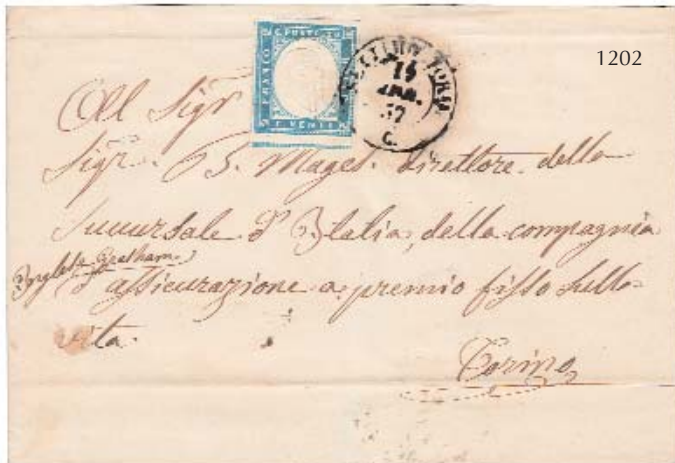 1202
C. POSTE 20
FRANCO
C. VENTI
TORINO
14
57
All Sigr
Sigr. B. Mages. direttore della
Succursale d'Italia, della compagnia
Inglese Gresham
d'assicurazione a premio fisso sulla
vita.
Torino